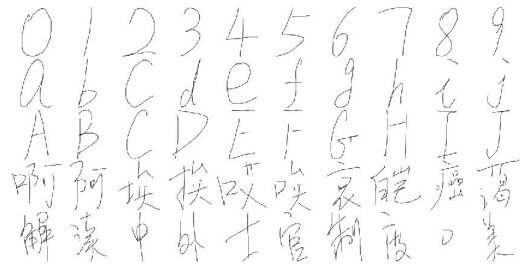 0 1 2 3 4 5 6 7 8 9
a b C d e f g h i j
A B C D E F G H I J
啊 阿 埃 挨 哎 唉 哀 皑 癌 蔼
解 读 中 外 士 官 制 度 。 美